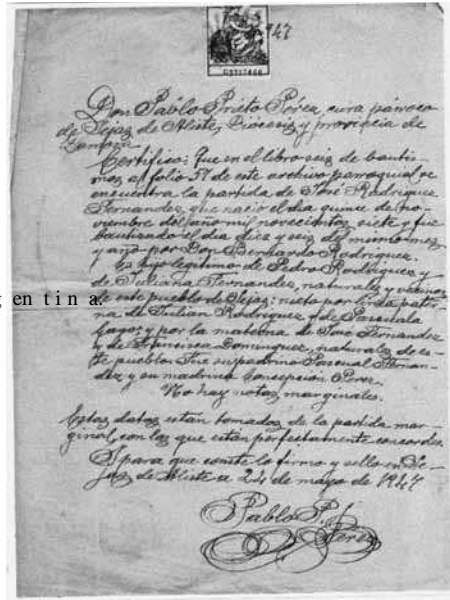 947
Don Pablo Prieto Pérez, cura párroco
de Tejas de Aliste, Diócesis y provincia de
Zamora
Certifico: Que en el libro seis de bautis-
mos al folio 57 de este archivo parroquial se
encuentra la partida de José Rodriguez
Fernandez, que nació el dia quince de no-
viembre del año mil novecientos siete y fue
bautizado el dia diez y seis del mismo mes
y año por Don Bernardo Rodriguez.
Es hijo legitimo de Pedro Rodriguez y
de Juliana Fernandez, naturales y vecinos
en tin a.
de este pueblo de Tejas; nieto por linea pater-
na de Julian Rodriguez y de Pascuala
Gago; y por la materna de José Fernandez
y de Francisca Dominguez, naturales de es-
te pueblo. Fue su padrino Pascual Fernan-
dez y su madrina Concepción Perez.
No hay notas marginales.
Estos datos estan tomados de la partida mar-
ginal, con los que estan perfectamente concordes.
Y para que conste lo firmo y sello en Te-
jas de Aliste a 24 de mayo de 1947
Pablo P.
Perez